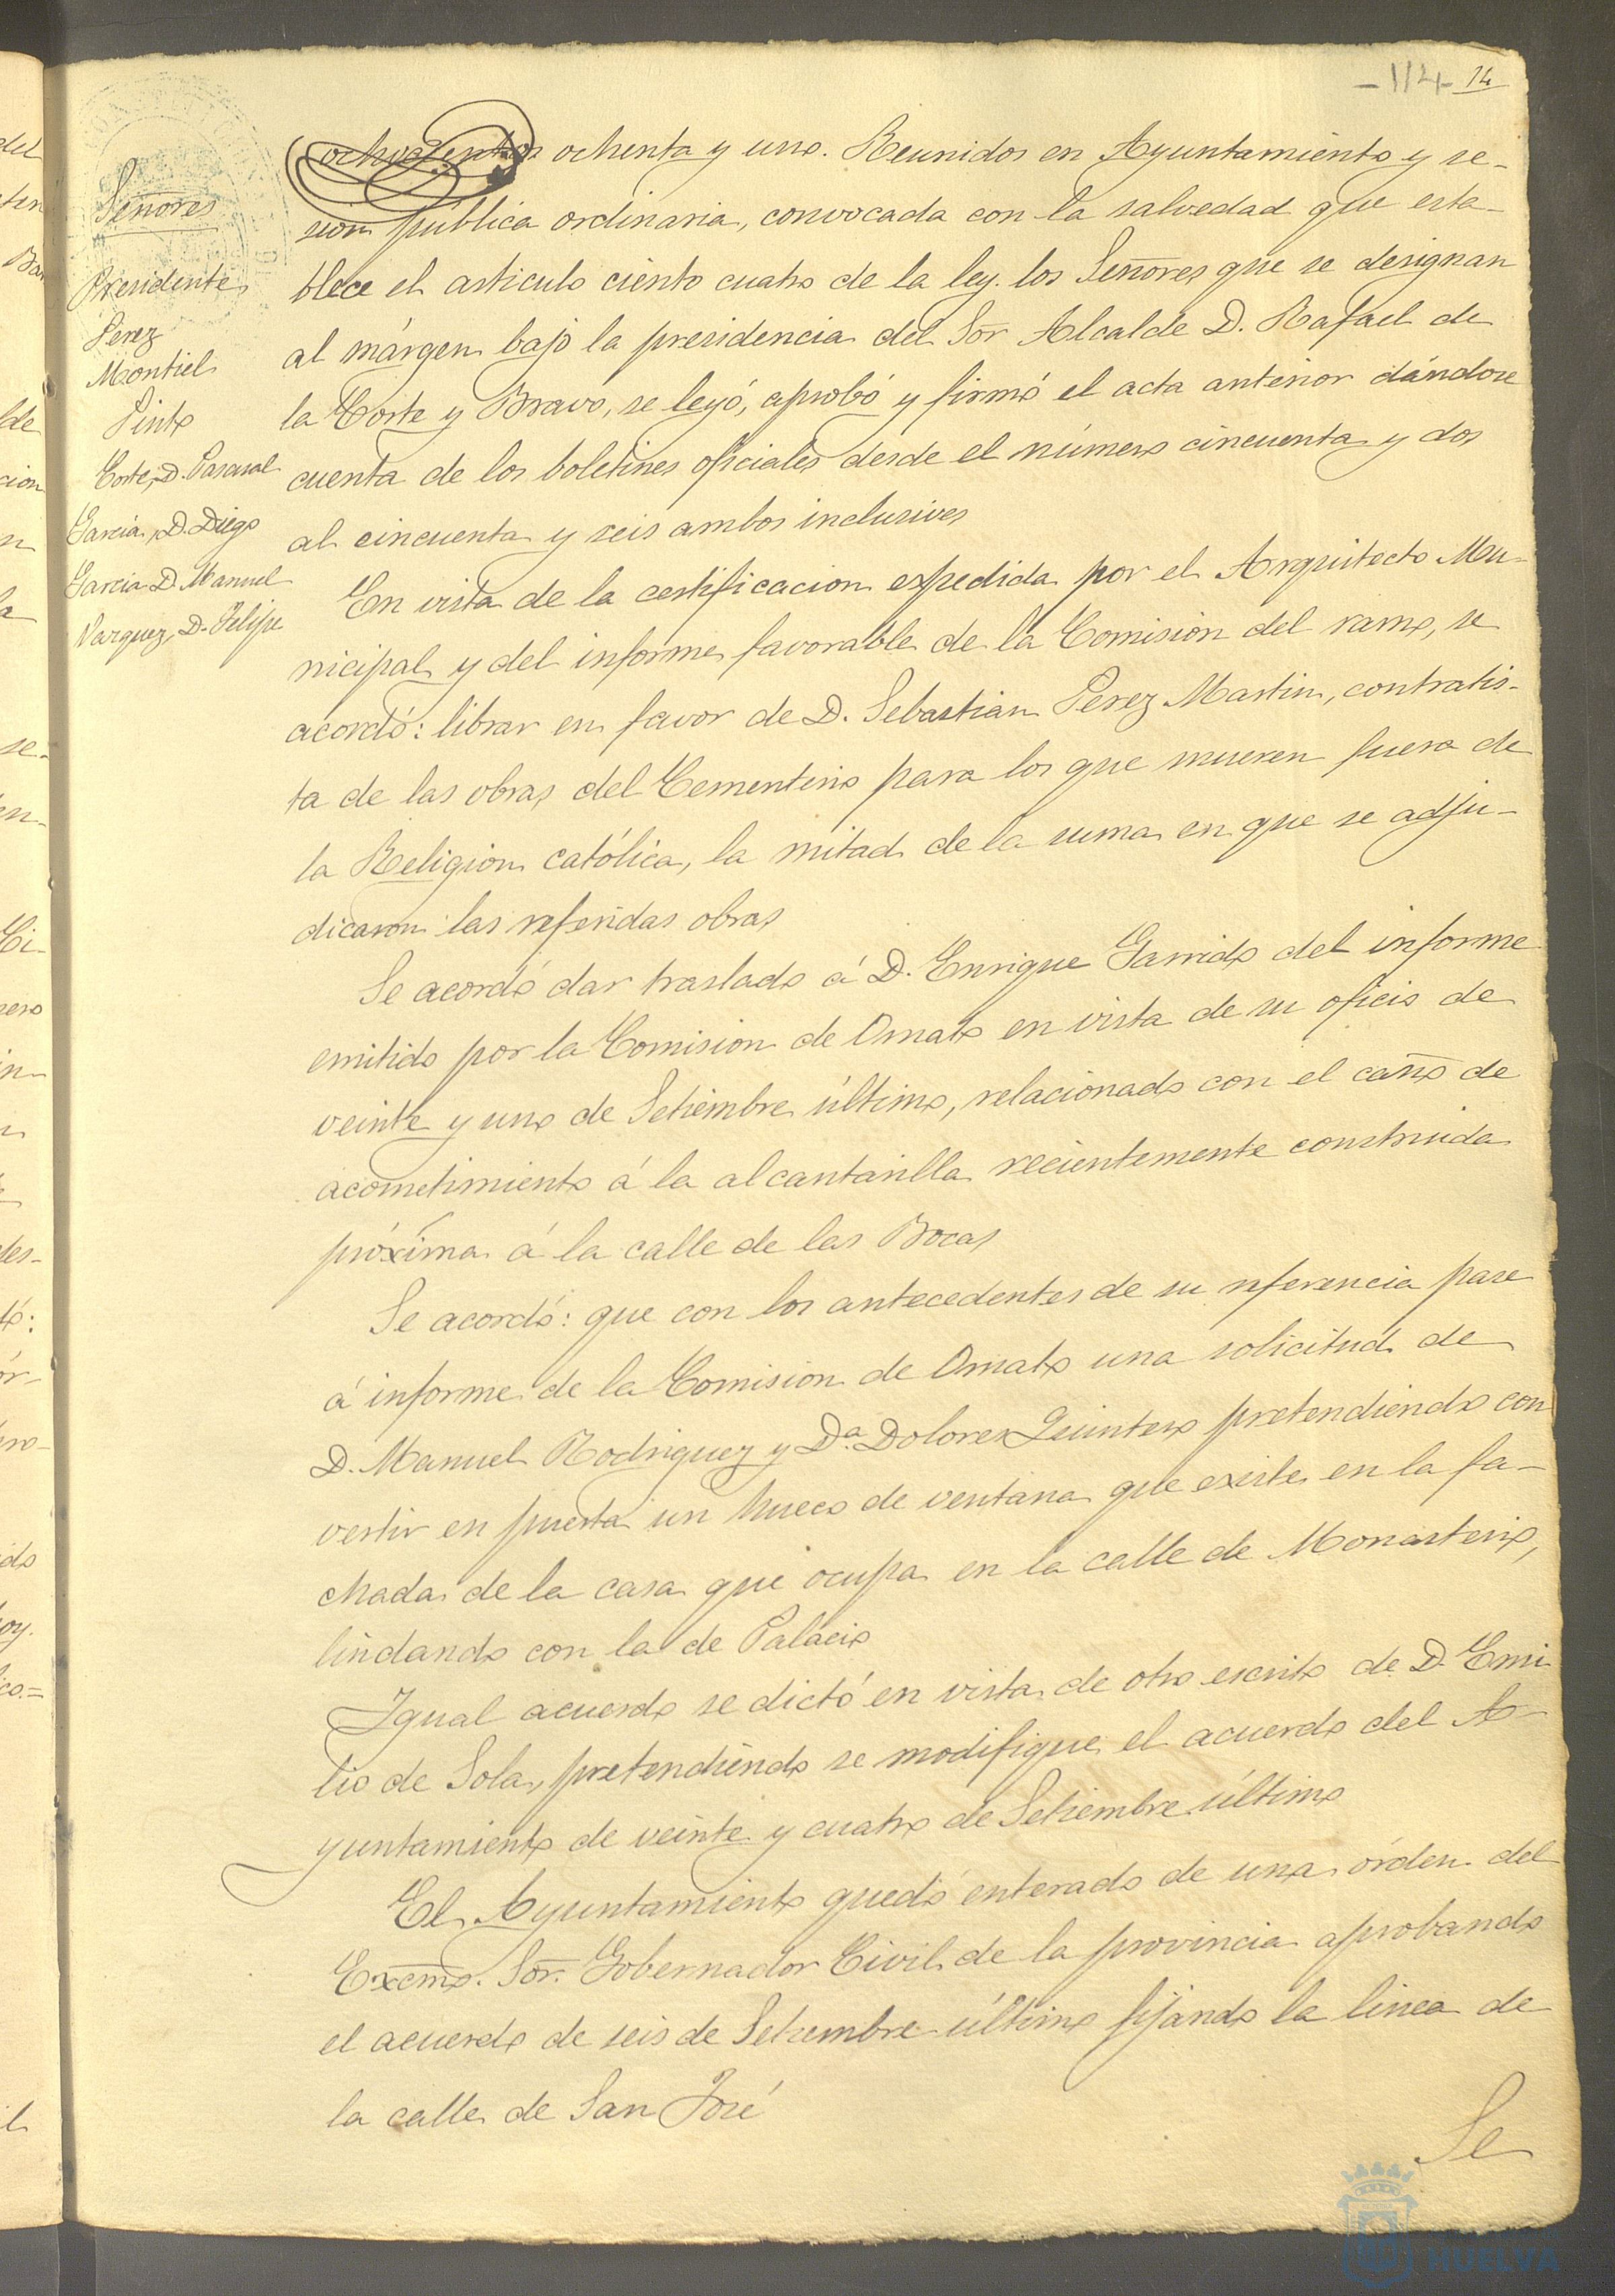 -114- 14
Señores
Presidente
Perez
Montiel
Pinto
Corte, D. Pascual
Garcia, D. Diego
Garcia D. Manuel
Vazquez, D. Felipe
ochocientos ochenta y uno. Reunidos en Ayuntamiento y se-
sion pública ordinaria, convocada con la salvedad que esta-
blece el articulo ciento cuatro de la ley. los Señores que se designan
al márgen bajo la presidencia del Sor Alcalde D. Rafael de
la Corte y Bravo, se leyó, aprobó y firmó el acta anterior dándose
cuenta de los boletines oficiales desde el número cincuenta y dos
al cincuenta y seis ambos inclusives
En vista de la certificacion expedida por el Arquitecto Mu-
nicipal y del informe favorable de la Comision del ramo, se
acordó: librar en favor de D. Sebastian Perez Martin, contratis-
ta de las obras del Cementerio para los que mueren fuera de
la Religion católica, la mitad de la suma en que se adju-
dicaron las referidas obras
Se acordó dar traslado á D. Enrique Garrido del informe
emitido por la Comision de Ornato en vista de su oficio de
veinte y uno de Setiembre último, relacionado con el caño de
acometimiento á la alcantarilla recientemente construida
próxima á la calle de las Bocas
Se acordó: que con los antecedentes de su referencia pase
á informe de la Comision de Ornato una solicitud de
D. Manuel Rodriguez y Da. Dolores Quintero pretendiendo con
vertir en puerta un hueco de ventana que existe en la fa-
chada de la casa que ocupa en la calle de Monasterio,
lindando con la de Palacio
Igual acuerdo se dictó en vista de otro escrito de D. Emi
lio de Sola, pretendiendo se modifique el acuerdo del A-
yuntamiento de veinte y cuatro de Setiembre último
El Ayuntamiento quedó enterado de una órden del
Excmo. Sor. Gobernador Civil de la provincia aprobando
el acuerdo de seis de Setiembre último fijando la linea de
la calle de San José
Se
HUELVA